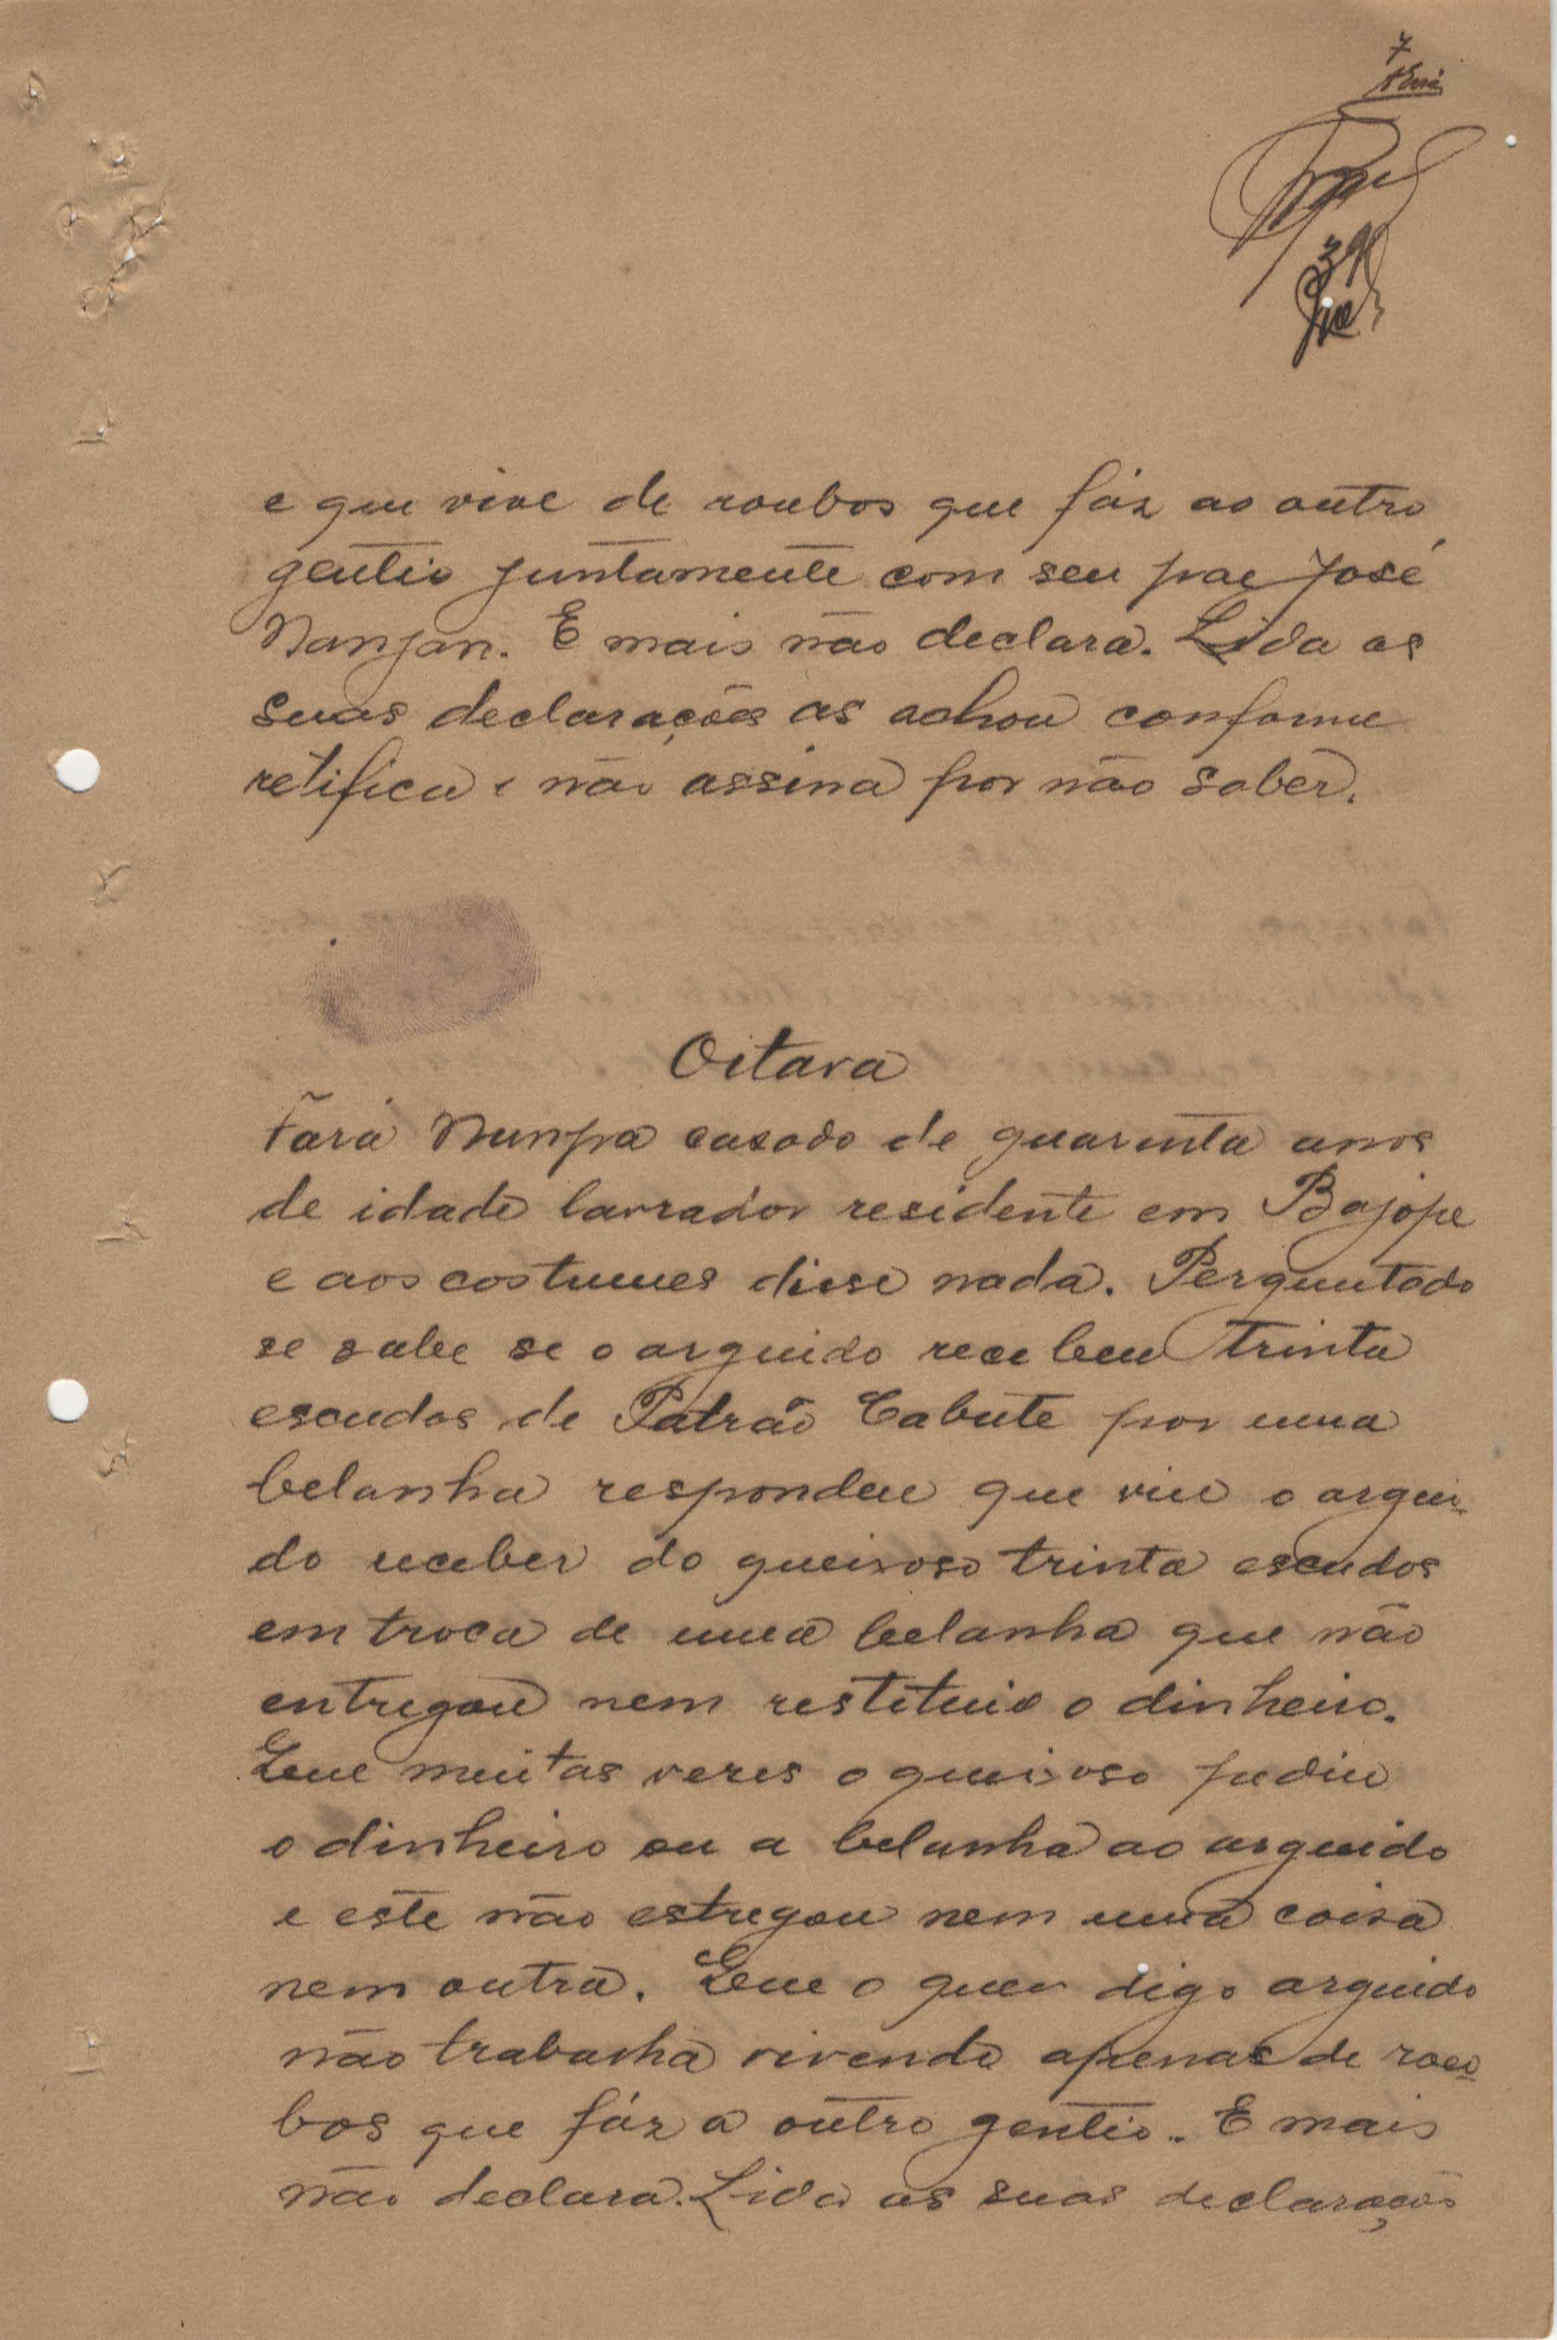 7
e que vive de roubos que fáz ao outro
gentio juntamente com seu pae José
Nanjan. E mais não declara. Lida as
suas declarações as achou conforme
retifica e não assina por não saber.
Oitava
Fará Nunpa casado de quarenta anos
de idade lavrador residente em Bajope
e aos costumes disse nada. Perguntado
se sabe se o arguido recebeu trinta
escudos de Patrão Cabute por uma
belanha respondeu que viu o argui-
do receber do queixoso trinta escudos
em troca de uma belanha que não
entregou nem restituiu o dinheiro.
Que muitas vezes o queixoso pediu
o dinheiro ou a belanha ao arguido
e este não estregou nem uma coisa
nem outra. Que o quei digo arguido
não trabasha vivendo apenas de rou-
bos que fáz a outro gentio. E mais
não declara. Lida as suas declarações